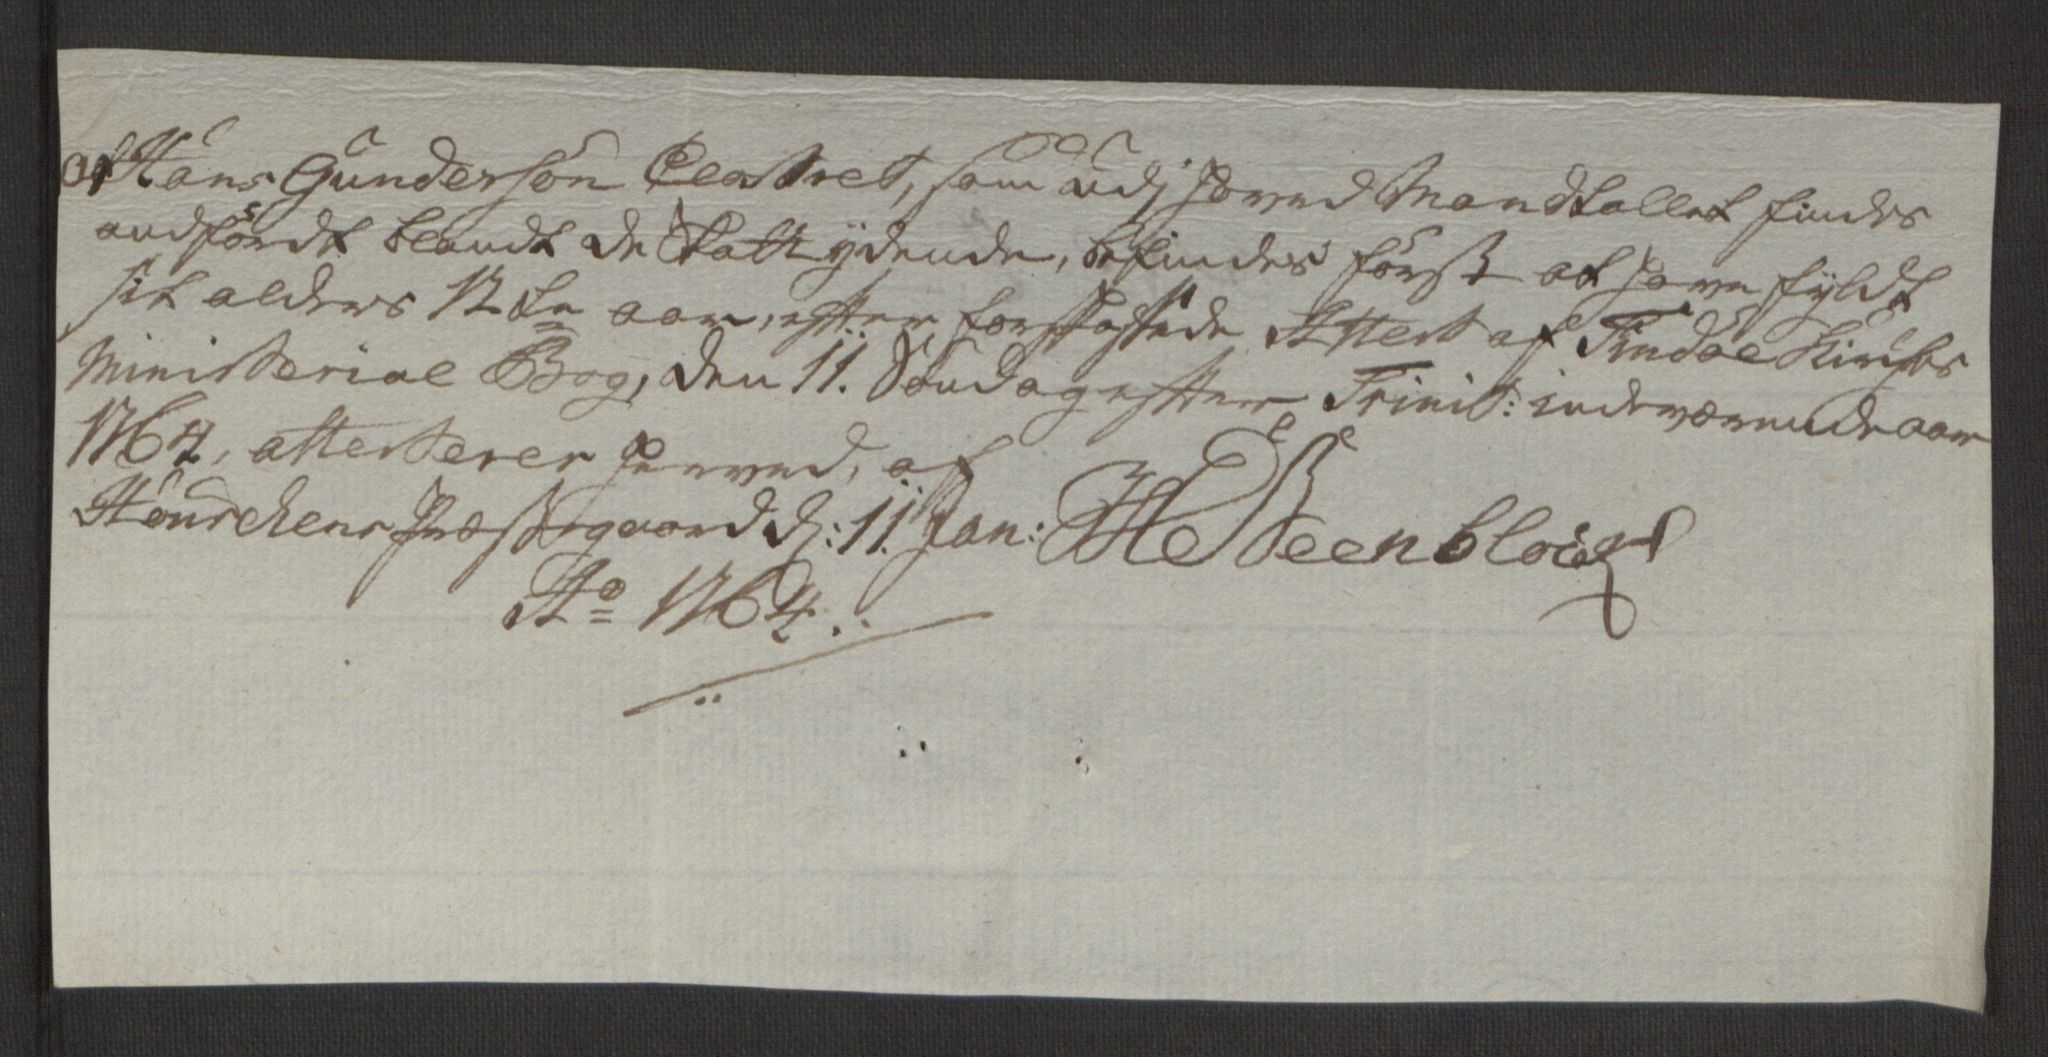 at Hans Gunderson Pladset, som udj Hoved Mandtallet findes
andførdt blandt de Skatt ydende, befindes først at have fyldt
sit alders 12te aar, efter forskaffede Attest af Tindøe Kirches
Ministerial Bog, den 11. Søndag efter Trinit: indeværende aar
1764, attesterer herved, af
Houschens Præstegaard d: 11 Jan: HSteenbloch
Ao 1764.